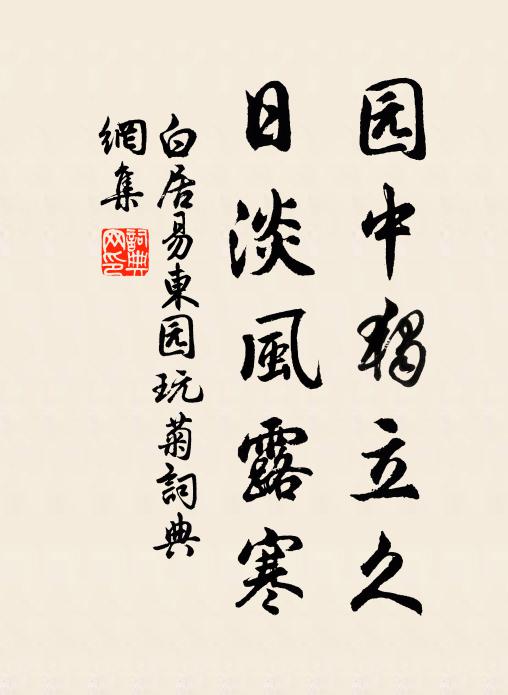 园中獨立久
日淡風露寒
白居易東园玩菊詞典
網集
詞典
网印